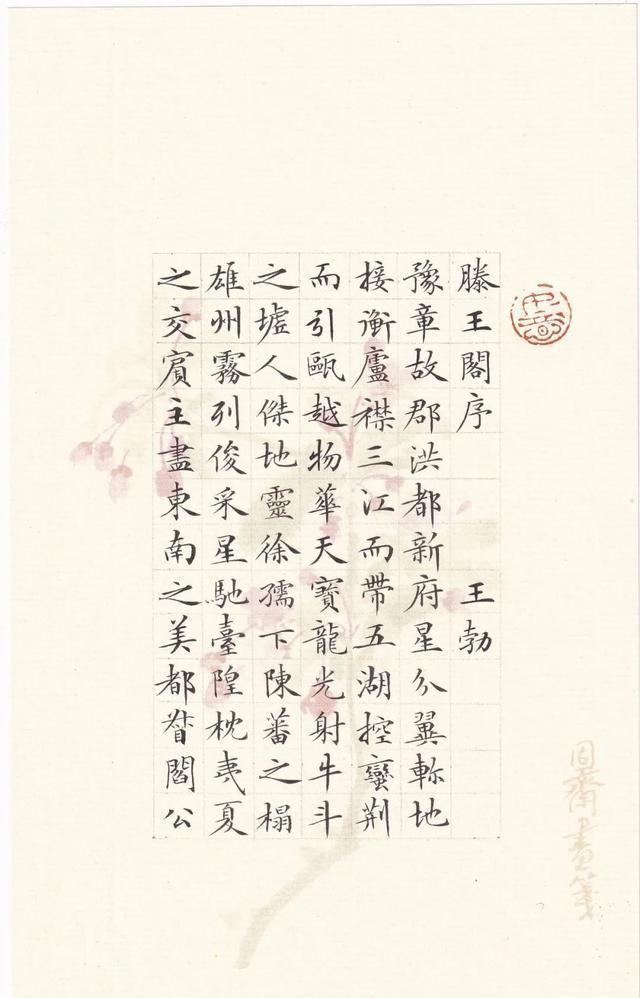 滕王閣序 王勃
豫章故郡洪都新府星分翼軫地
接衡廬襟三江而帶五湖控蠻荆
而引甌越物華天寶龍光射牛斗
之墟人傑地靈徐孺下陳蕃之榻
雄州霧列俊采星馳臺隍枕夷夏
之交賓主盡東南之美都督閻公